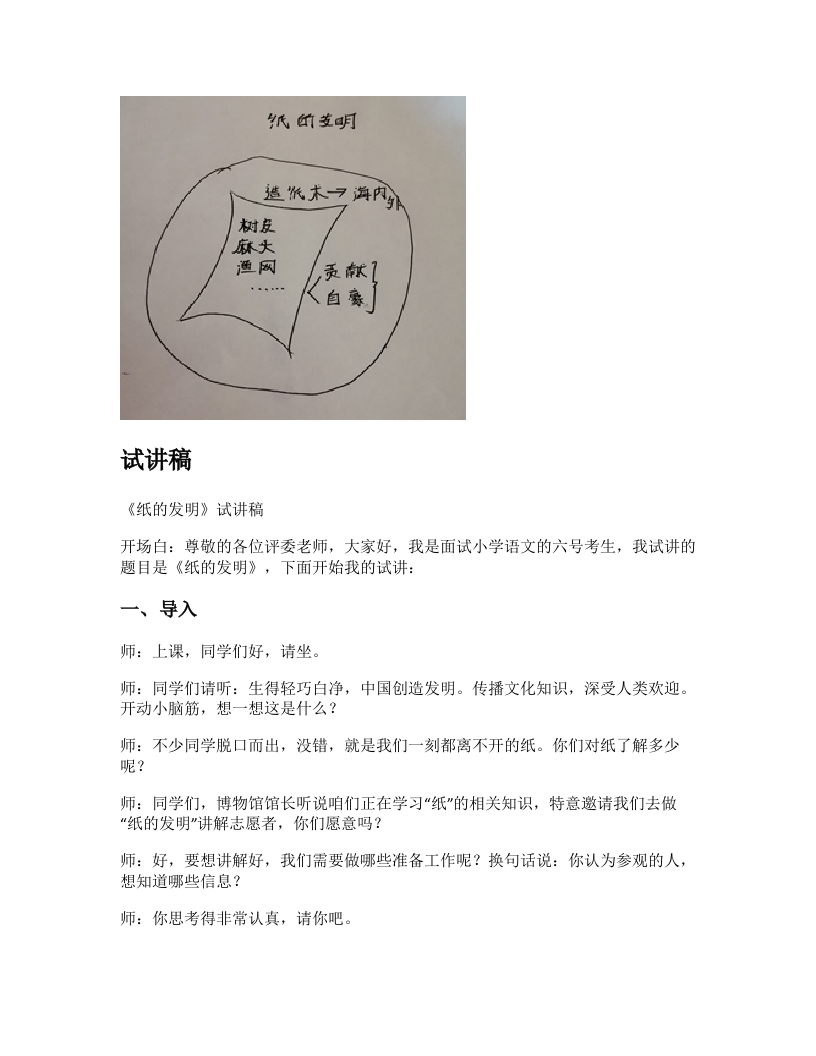 纸的发明
造纸术→海内外
树皮
麻头
渔网
……
贡献
自豪
试讲稿
《纸的发明》试讲稿
开场白：尊敬的各位评委老师，大家好，我是面试小学语文的六号考生，我试讲的
题目是《纸的发明》，下面开始我的试讲：
一、导入
师：上课，同学们好，请坐。
师：同学们请听：生得轻巧白净，中国创造发明。传播文化知识，深受人类欢迎。
开动小脑筋，想一想这是什么？
师：不少同学脱口而出，没错，就是我们一刻都离不开的纸。你们对纸了解多少
呢？
师：同学们，博物馆馆长听说咱们正在学习“纸”的相关知识，特意邀请我们去做
“纸的发明”讲解志愿者，你们愿意吗？
师：好，要想讲解好，我们需要做哪些准备工作呢？换句话说：你认为参观的人，
想知道哪些信息？
师：你思考得非常认真，请你吧。